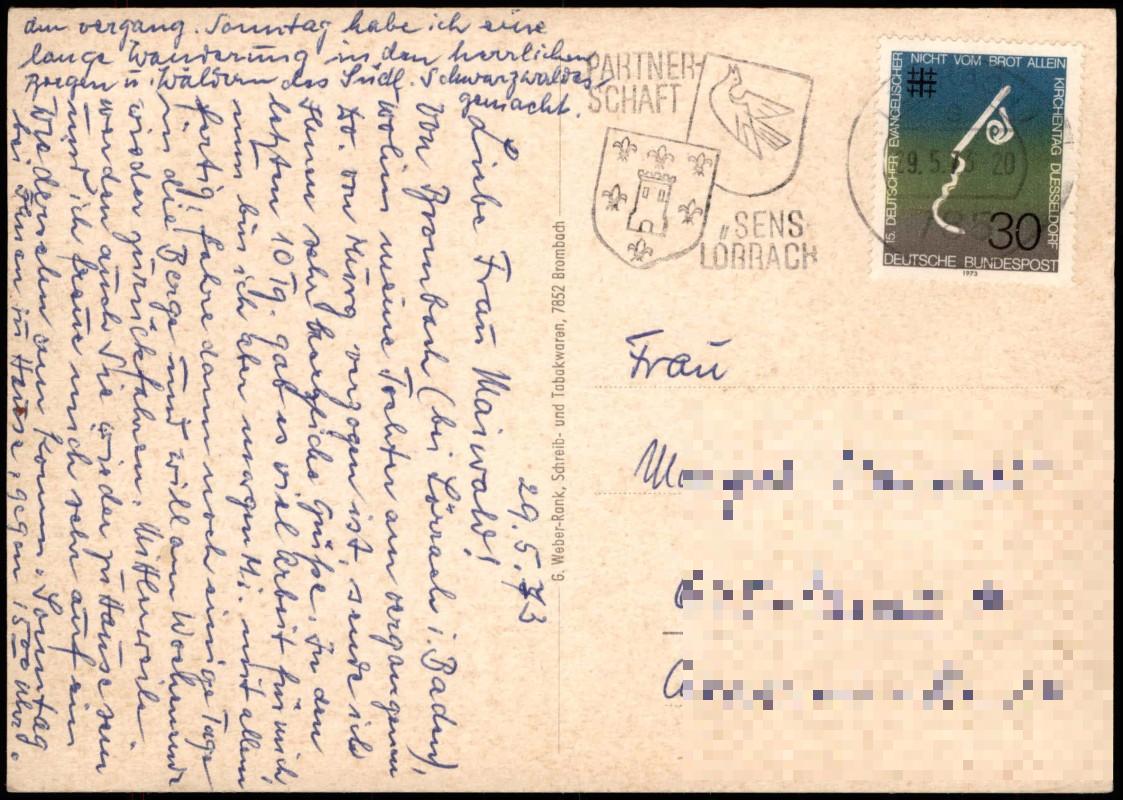 29.5.73
Liebe Frau Maiwald!
Von Brombach (bei Lörrach i. Baden),
wohin meine Tochter am vergangenen
Do. von verzogen ist, sende ich
Ihnen sehr herzliche Grüße. In den
letzten 10 Tg. gab es viel Arbeit für mich,
nun bin ich aber morgen Mi. mit allem
fertig, fahre dann noch einige Tage
in die Berge und will am Wochenende
wieder zurückfahren. Mittlerweile
werden auch Sie wieder zu Hause sein
und ich freue mich sehr auf ein
Wiedersehen am komm. Sonntag
bei Ihnen zu Hause, gegen 15 00 Uhr.
den vergang. Sonntag habe ich eine
lange Wanderung in den herrlichen
Bergen u. Wäldern des Südl. Schwarzwaldes
gemacht.
G. Weber-Rank, Schreib- und Tabakwaren, 7852 Brombach
PARTNER-
SCHAFT
SENS
LÖRRACH
29.5.73 20
15. DEUTSCHER EVANGELISCHER KIRCHENTAG DUESSELDORF
NICHT VOM BROT ALLEIN
30
DEUTSCHE BUNDESPOST
1973
Frau